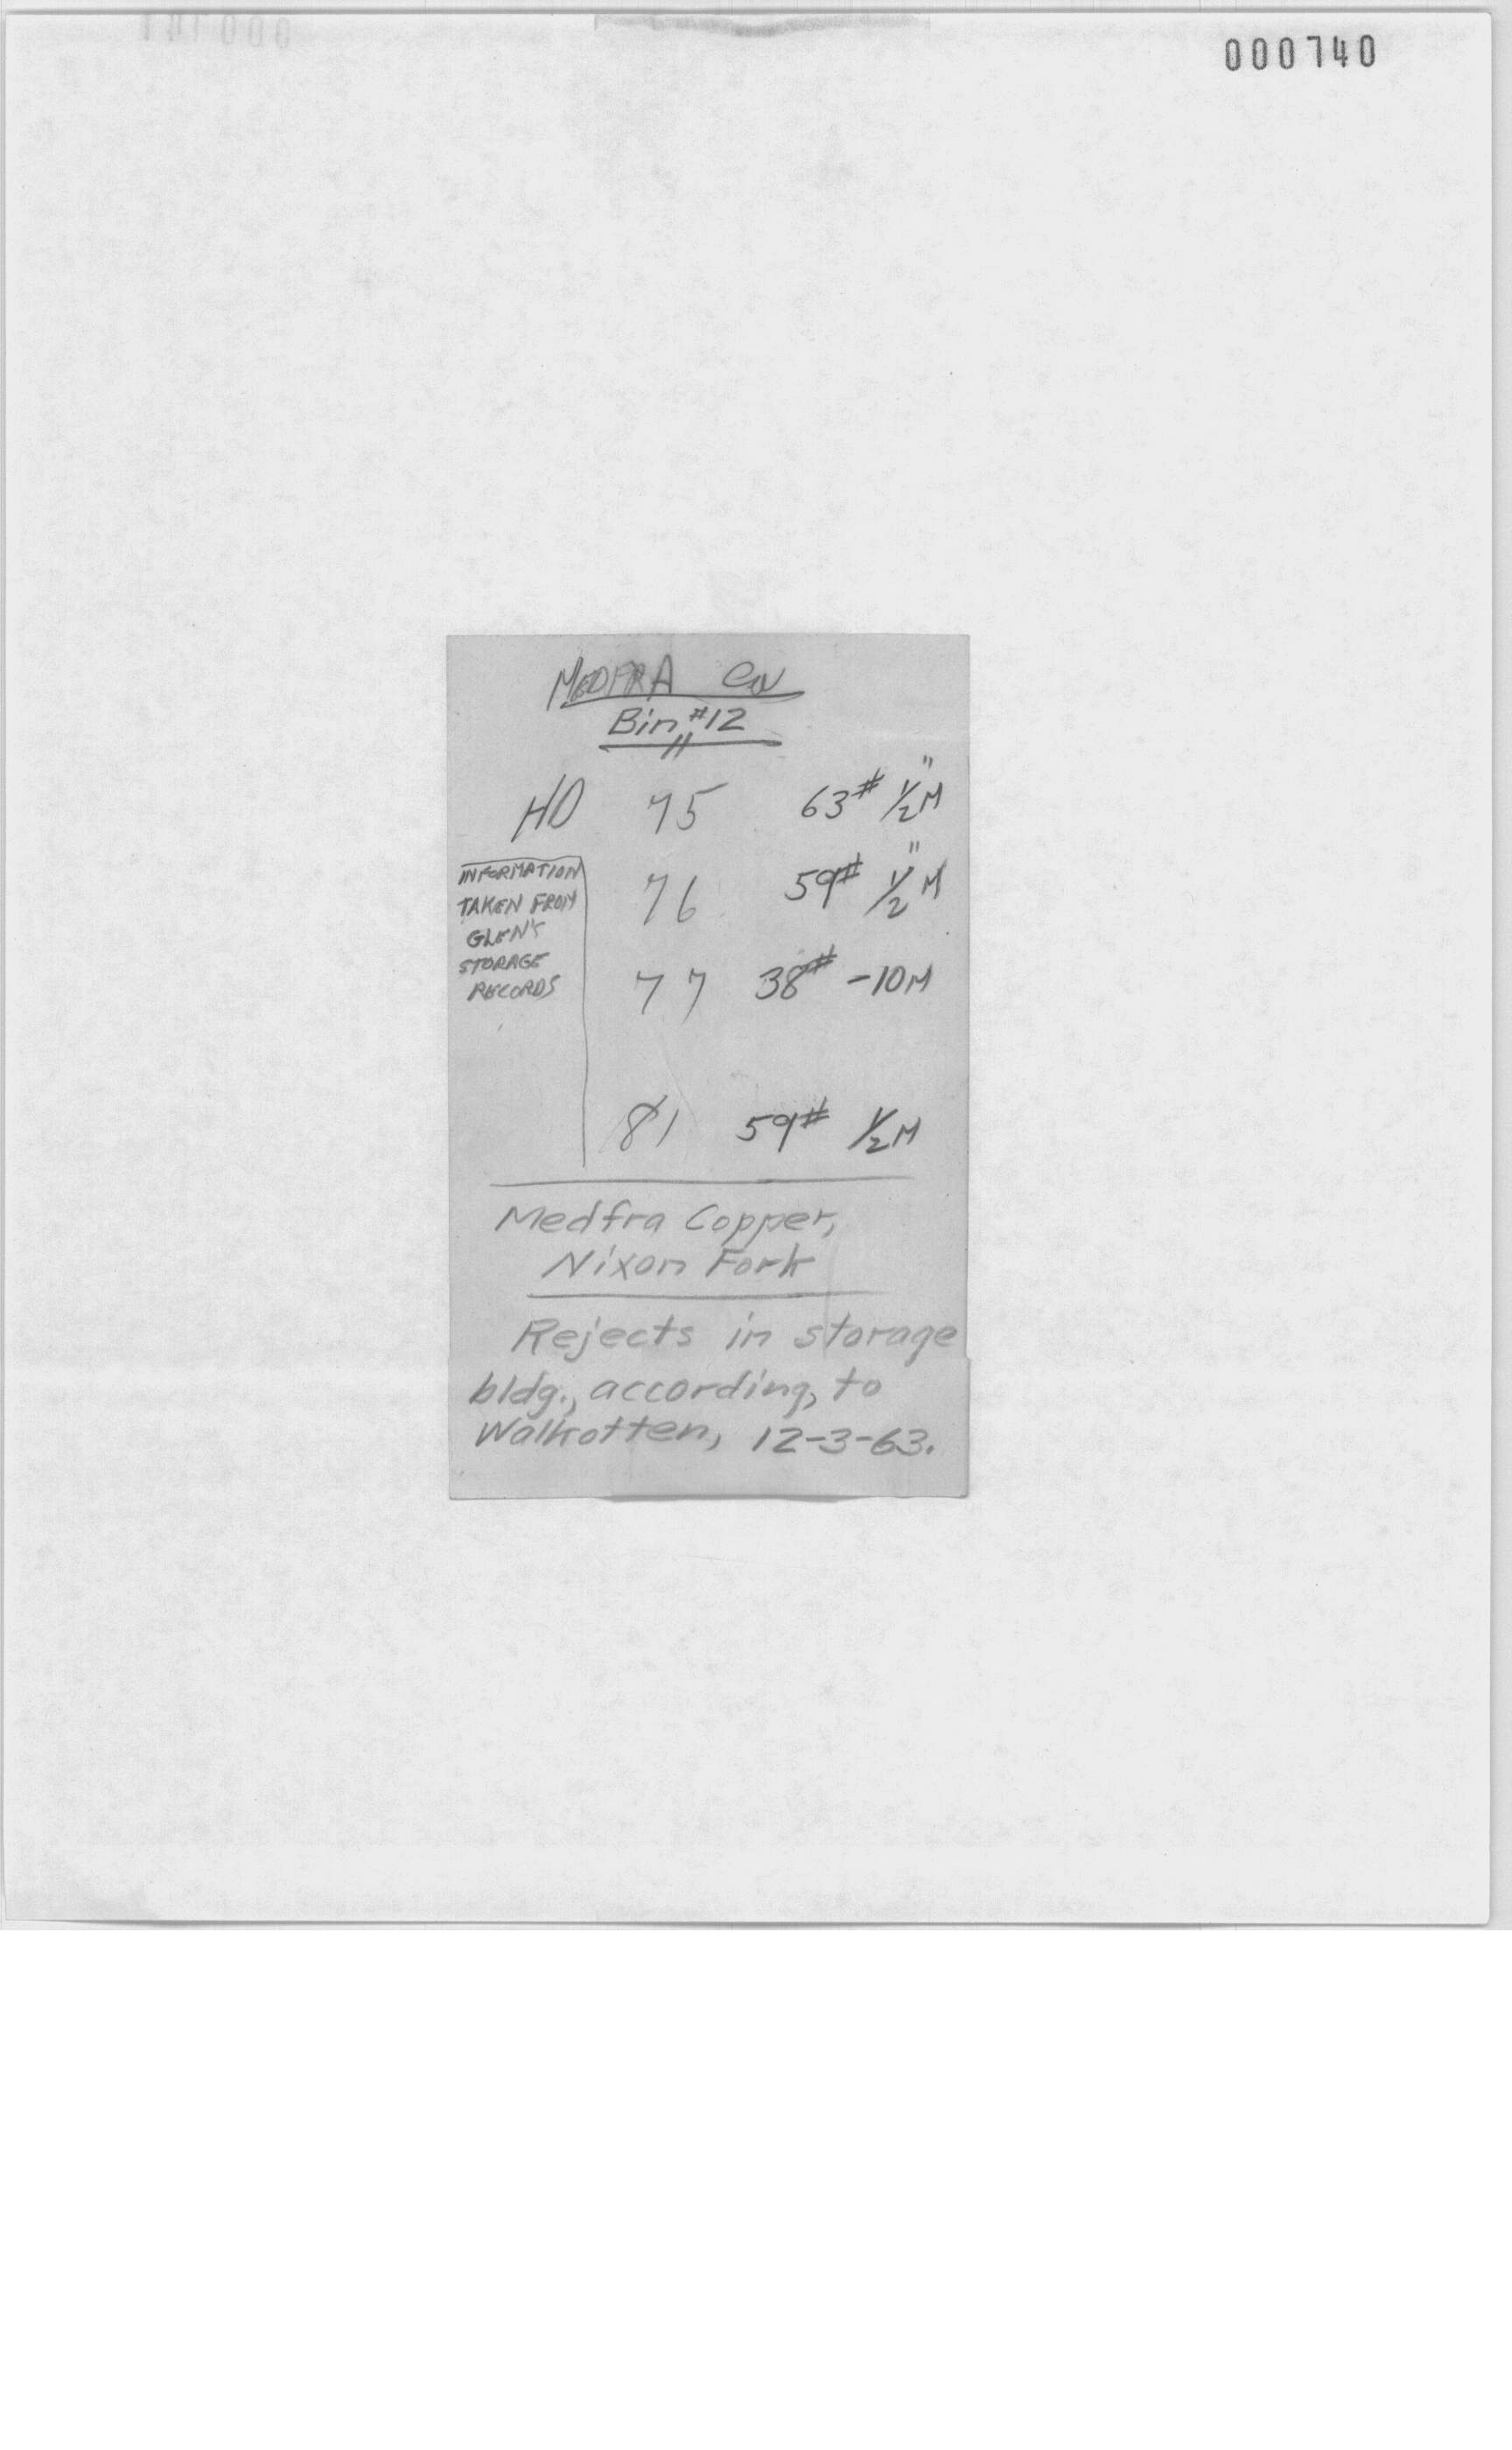 000740
MEDFRA Cu
Bin #12
HO 75 63# 1/2" M
76 59# 1/2" M
INFORMATION
TAKEN FROM
GLEN'S
STORAGE
RECORDS
77 38# -10M
81 59# 1/2 M
Medfra Copper,
Nixon Fork
Rejects in storage
bldg., according, to
Walkotten, 12-3-63.